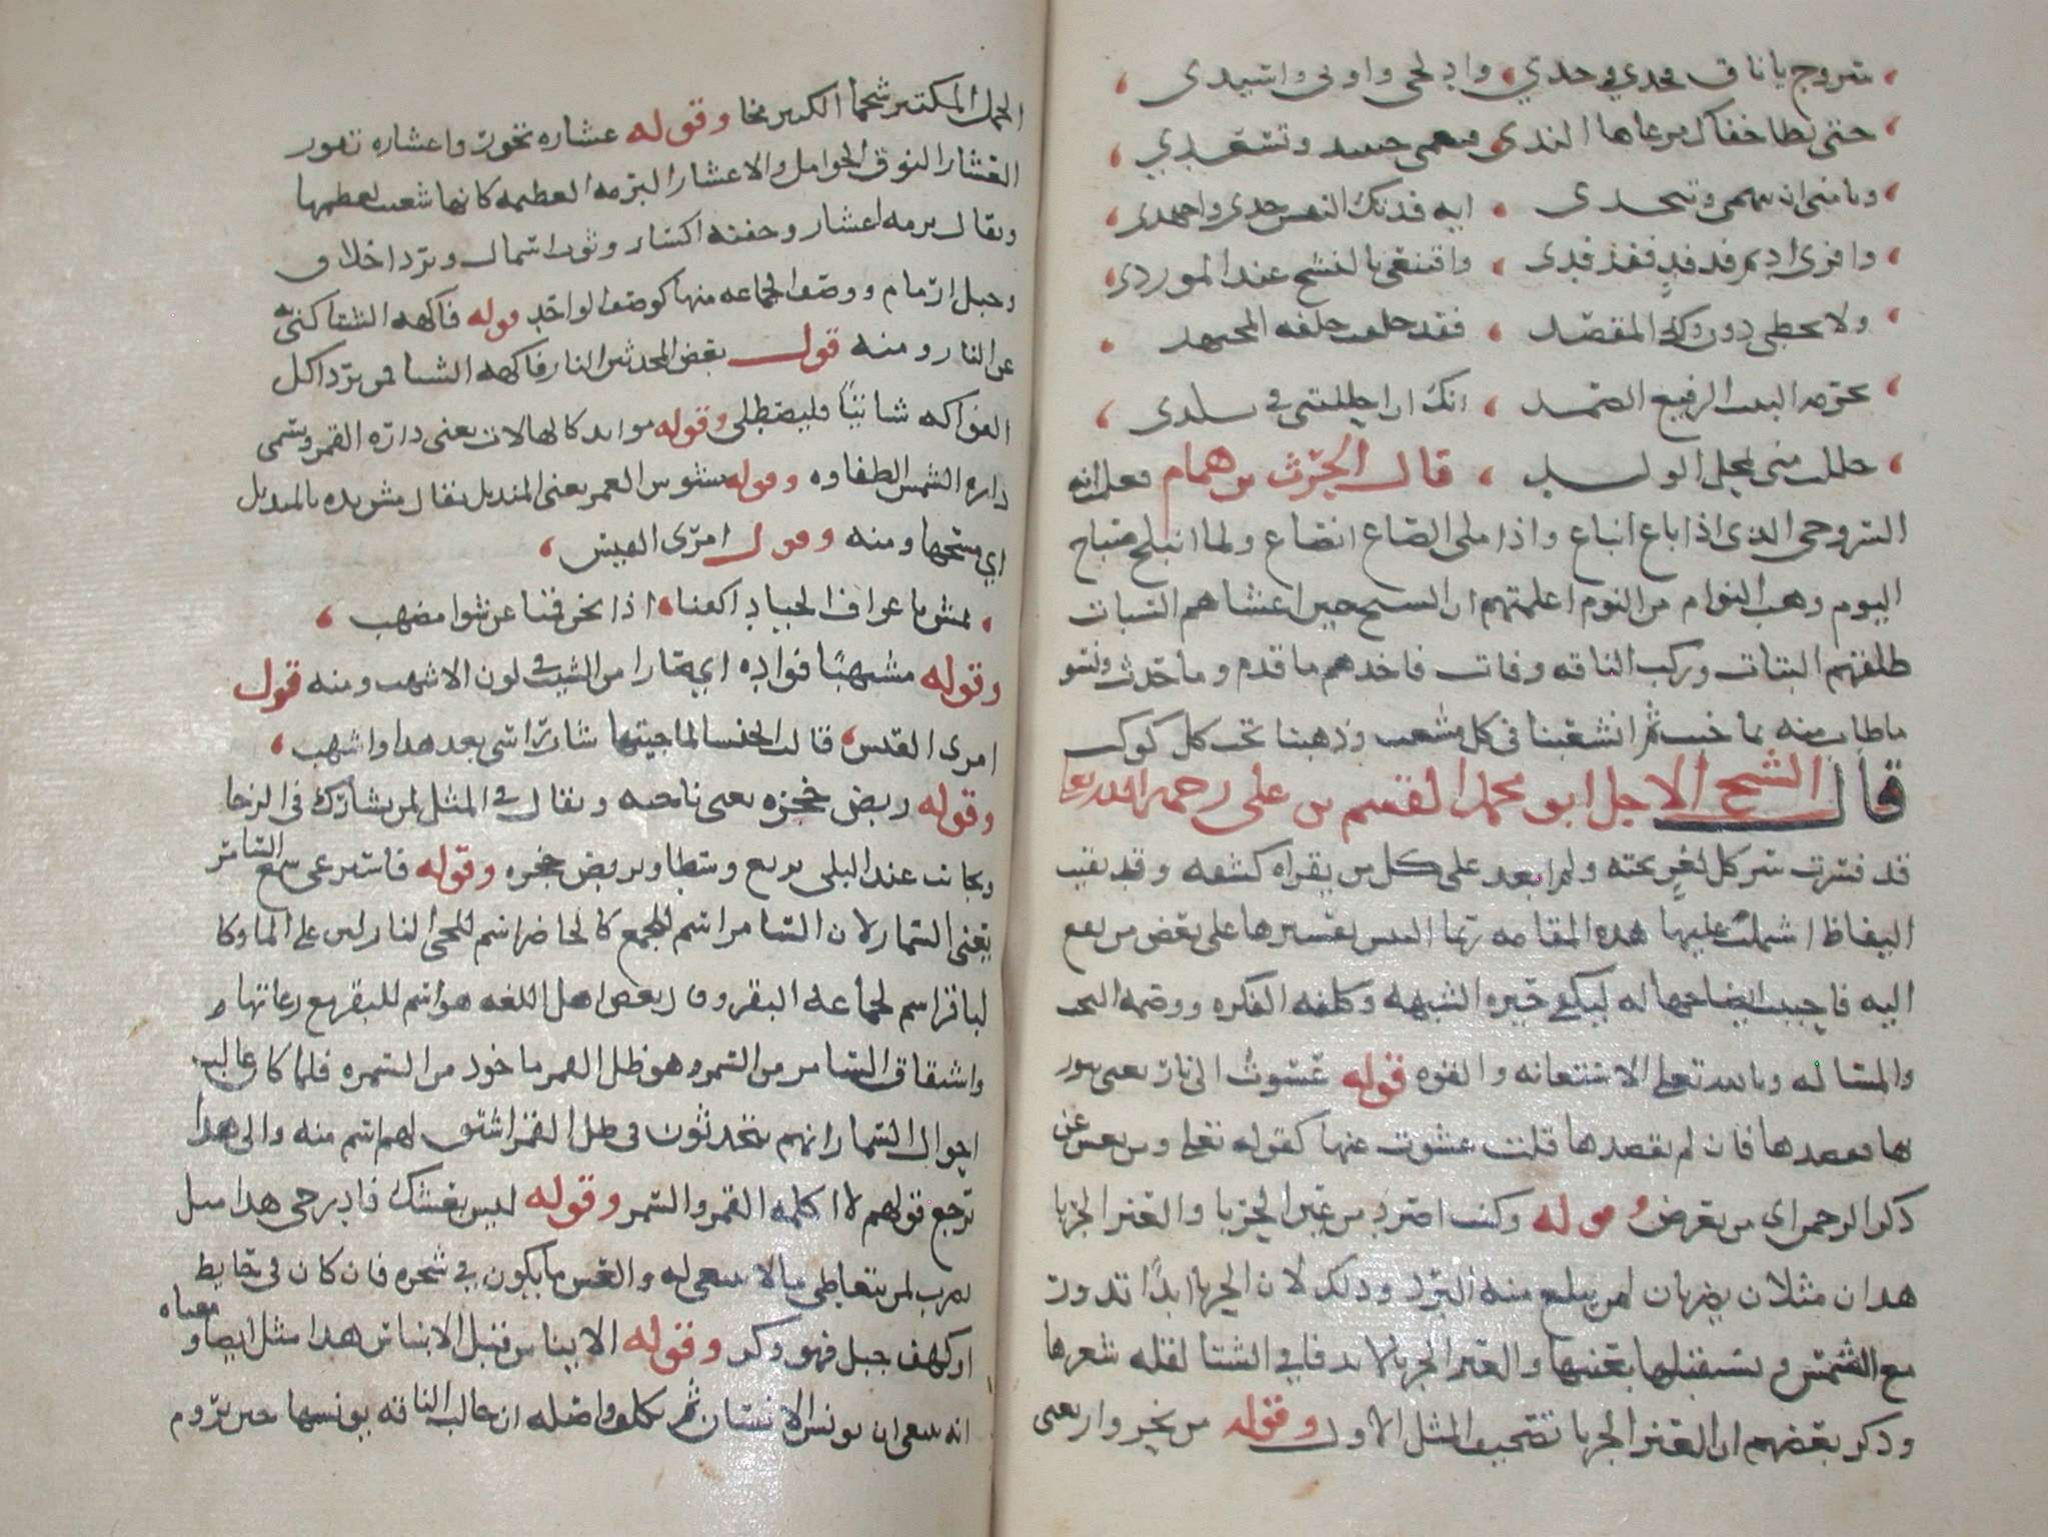 سروج يا ناق فخدي وخدي وادلجى واوبى واسيدى
حتى تطا خفاك مرعاها الندى فتنعمى حينيد وتسعدي
وتامنى ان تتهمى وتنجدى ايه فدتك النفس جدى واجهدى
وافرى اديم فدفد ففدفد واقتنعى بالنشح عند المورد
ولا تحطى دون ذاك المقصد فقد حلفت حلفه المجتهد
بحرمه البيت الرفيع العمد انك ان احللتنى فى بلدى
حللت منى محل الولد قال الحرث بن همام فعلمت انه
السروجى الذى اذا باع انباع واذا ملى الصاع انصاع ولما انبلج صباح
اليوم وهب النوام من النوم اعلمتهم ان الشيخ حين اغشاهم السبات
طلقهم البتات وركب الناقه وفات فاخذهم ما قدم وما حدث ونسو
ما طاب منه بما خبث ثم انشعبنا فى كل مشعب وذهبنا تحت كل كوكب
قال الشيخ الاجل ابو محمد القسم بن على رحمه الله
قد فسرت سر كل لغز تحته ولم ابعد على كل من يقراه كشفه وقد بقيت
اليفاظ اشملت عليها هذه المقامه ربما التبس تفسيرها على بعض من يقع
اليه فاحببت ايضاحها له ليكفى حيره الشبهه وكلفه الفكره ووصمه البحث
والمساله وبالله تعلى الاستعانه والقوه قوله عشوت الى نار يعنى
ها فقصدها فان لم يقصدها قلت عشوت عنها كقوله تعلى ومن يعش عن
ذكر الرحمن اى من يعرض وقوله وكنت اصرد من عين الحربا والعنز الجربا
هذان مثلان يضربان لمن يبلغ منه البرد وذلك لان الحربا ابدا تدور
مع الشمس وتستقبلها بعينها والعنز الجربا لا تدفا فى الشتا لقله شعرها
وذكر بعضهم ان العنز الجربا تصحيف المثل الاول وقوله من نحير وار يعنى
الجمل المكتنز شحما الكثير مخا وقوله عشاره تخور واعشاره تفور
العشار النوق الحوامل والاعشار البرمه العظيمه كانها شعبت لعظمها
ويقال برمه اعشار وجفنه اكسار وثوب اسمال وبرد اخلاق
وحبل ارمام ووصف الجماعه منها كوصف الواحد قوله فاكهه الشتا كنى به
عن النار ومنه قول بعض المحدثين النار فاكهه الشتا فمن يرد اكل
الفواكه شاتيا فليصطلى وقوله موايد كالهالات يعنى داره القمر وتسمى
داره الشمس الطفاوه وقوله مشوش الغمر يعنى المنديل يقال مش يده بالمنديل
اي مسحها ومنه وقول امرى القيس
نمش باعراف الجياد اكفنا اذا نحن قمنا عن شوا مضهب
وقوله مشتهبا فواده اي صار من الشيب فى لون الاشهب ومنه قول
امرى القيس قالت الخنسا لما جيتها شاب راسى بعد هذا واشهب
وقوله ربض حجره يعنى ناحيه ويقال فى المثل لمن يشارك فى الرخا
ويجانب عند البلى يرتع وسطا ويربض حجره وقوله فاستمر عى سمع السامر
يعنى السمار لان السامر اسم للجمع كالحاضر اسم للحى النازلين على الما وكا
لباقر اسم لجماعه البقر وقال بعض اهل اللغه هو اسم للبقر مع رعاتها
واشتقاق السامر من السمر وهو ظل القمر ماخوذ من السمره فلما كان غالب
احوال السمار انهم يتحدثون فى ظل القمر اشتق لهم اسم منه والى هذا
ترجع قولهم لا اكلمه القمر والسمر وقوله ليس بعشك فادرجى هذا مثل
يضرب لمن يتعاطى ما لا ينبغى له والعش ما يكون فى شجره فان كان فى حايط
او كهف جبل فهو وكر وقوله الايناس قبل الابساس هذا مثل ايضا ومعناه
انه ينبغى ان يونس الانسان ثم يكلف واصله ان حالب الناقه يونسها حين يروم